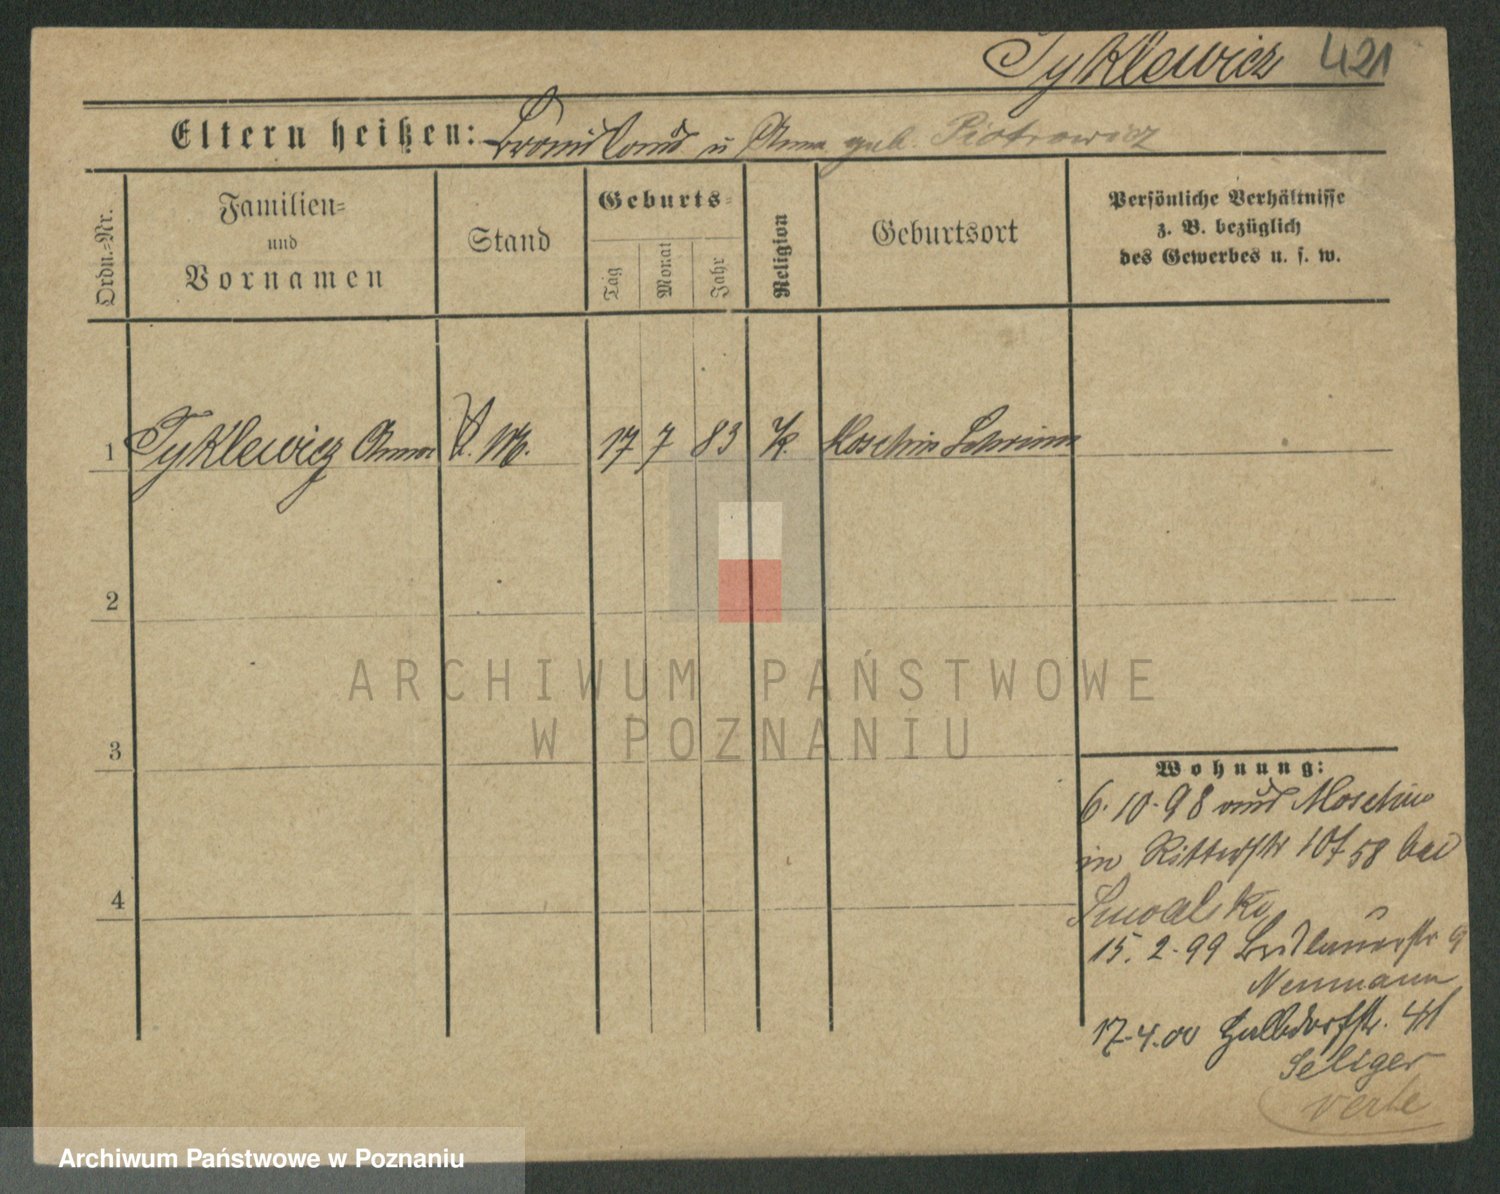 Tyklewicz 421
Eltern heißen: Bronislaus u Anna geb. Piotrowicz
Ordn.-Nr.
Familien-
und
Vornamen
Stand
Geburts-
Tag
Monat
Jahr
Religion
Geburtsort
Persönliche Verhältnisse
z. B. bezüglich
des Gewerbes u. s. w.
1 Tyklewicz Anna D. M. 17 7 83 k. Moschin Schrimm
2
3
4
ARCHIWUM PAŃSTWOWE
W POZNANIU
Wohnung:
6. 10. 98 aus Moschin
in Ritterstr 10 58 bei
15. 2. 99 9
Neumann
17. 4. 00 Halbdorfstr. 41
Seliger
Archiwum Państwowe w Poznaniu